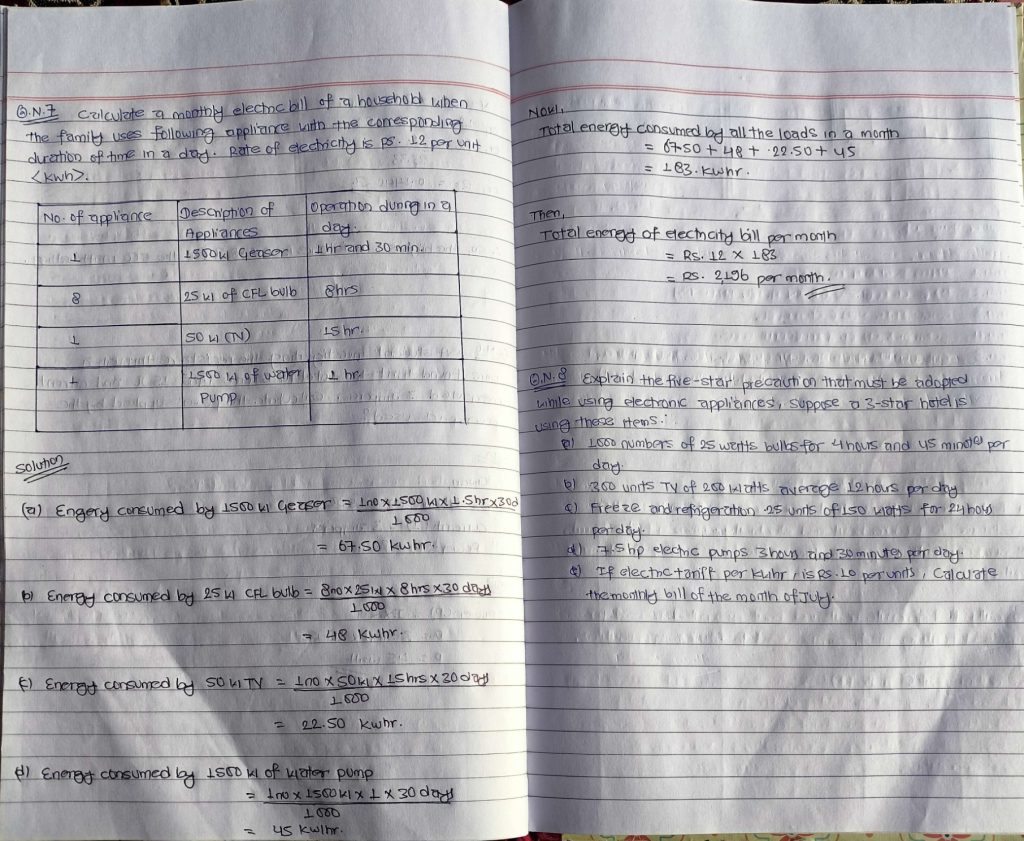 Q.N.7 Calculate a monthly electric bill of a household when
the family uses following appliance with the corresponding
duration of time in a day. Rate of electricity is Rs. 12 per unit
<kwh>.
No. of appliance | Description of Appliances | Operation during in a day.
1 | 1500w Geaser | 1hr and 30 min.
8 | 25 w of CFL bulb | 8hrs
1 | 50 w (TV) | 15 hr.
1 | 1500 w of water pump | 1 hr
Solution
(a) Engery consumed by 1500 w Geaser = 1no x 1500 w x 1.5hr x 30d
1000
= 67.50 kwhr.
b) Energy consumed by 25 w CFL bulb = 8no x 25w x 8hrs x 30 days
1000
= 48 kwhr.
c) Energy consumed by 50 w TV = 1no x 50w x 15hrs x 30 days
1000
= 22.50 kwhr.
d) Energy consumed by 1500 w of water pump
= 1no x 1500w x 1 x 30 days
1000
= 45 kwhr.
Now,
Total energy consumed by all the loads in a month
= 67.50 + 48 + 22.50 + 45
= 183. kwhr.
Then,
Total energy of electricity bill per month
= Rs. 12 x 183
= Rs. 2,196 per month.
Q.N.8 Explain the five-star precaution that must be adopted
while using electronic appliances, suppose a 3-star hotel is
using these items:
a) 1000 numbers of 25 watts bulbs for 4 hours and 45 minutes per
day.
b) 360 units TV of 200 watts average 12 hours per day
c) Freeze and refrigeration 25 units of 150 watts for 24 hours
per day.
d) 7.5hp electric pumps 3 hours and 30 minutes per day.
e) If electric tariff per kwhr, is Rs. 10 per units, Calculate
the monthly bill of the month of July.